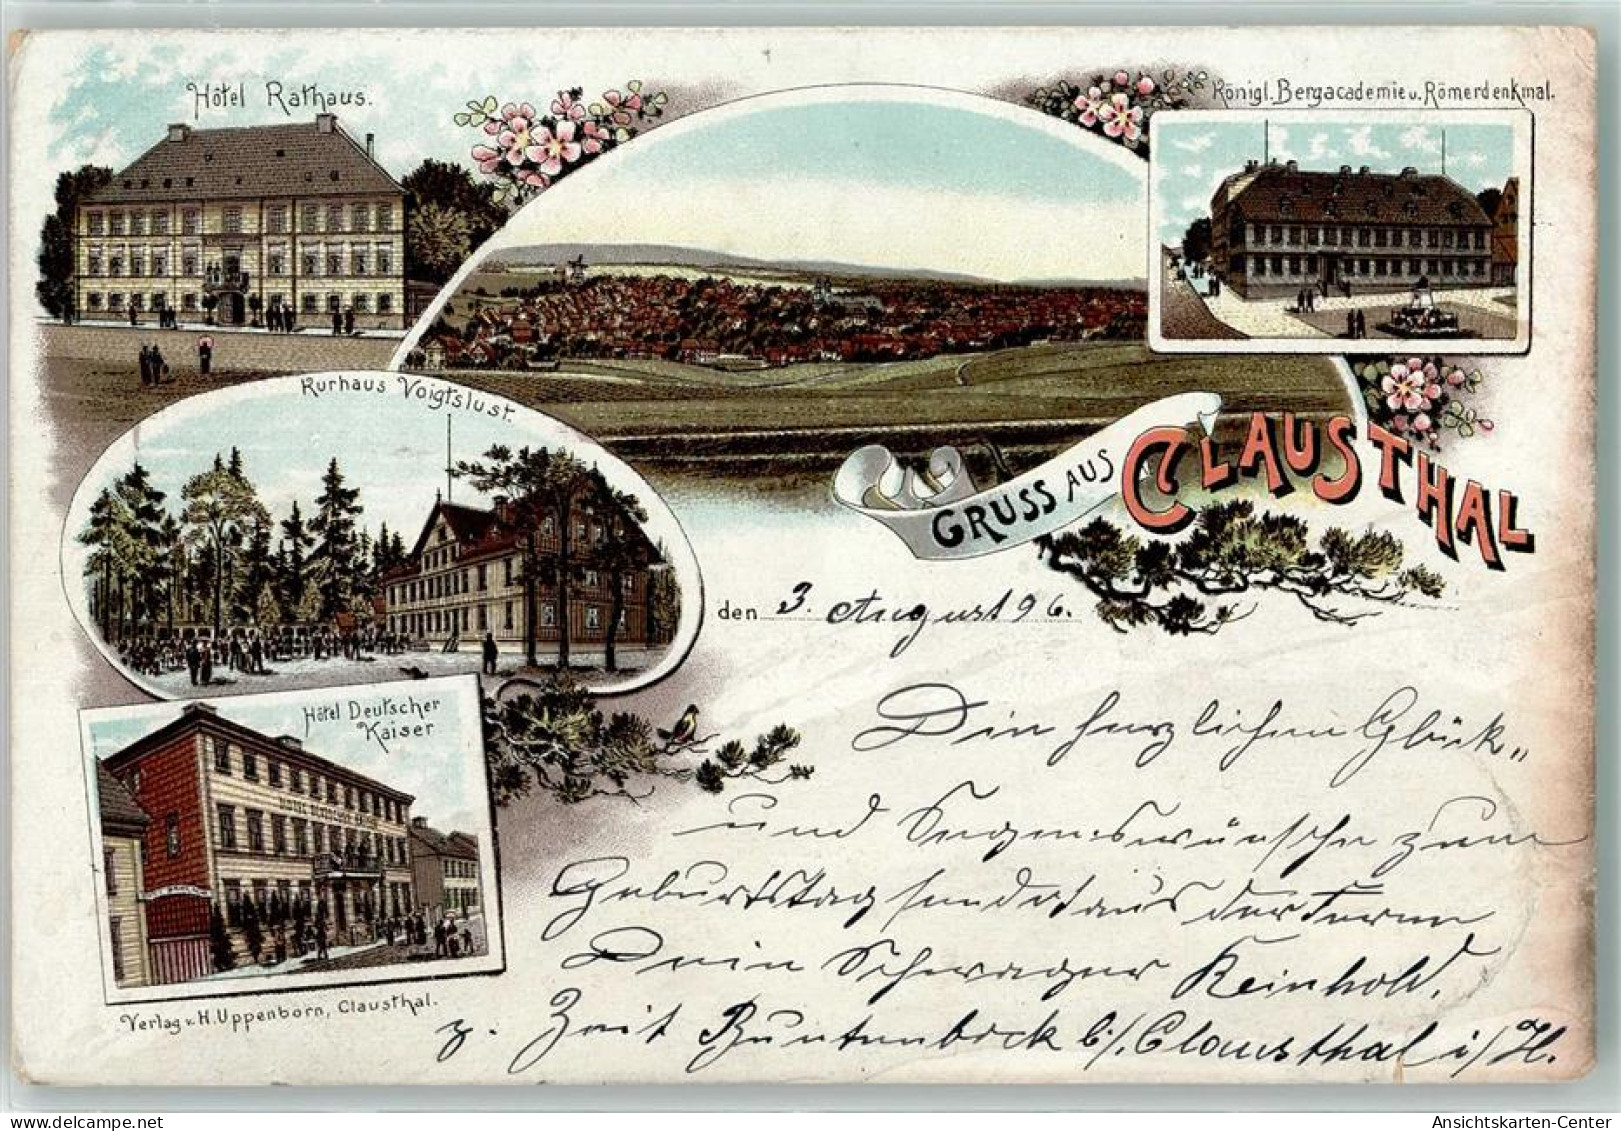 Hôtel Rathaus.
Königl. Bergacademie u. Römerdenkmal.
Kurhaus Voigtslust.
GRUSS AUS CLAUSTHAL
den 3. August 96.
Hôtel Deutscher
Kaiser
HOTEL DEUTSCHER KAISER
Die herzlichen Glück-
und Segenswünsche zum
Geburtstag sendet aus der Ferne
Dein Schwager Reinhold,
z. Zeit Buntenbock b/. Clausthal i/H.
Verlag v. H. Uppenborn, Clausthal.
Ansichtskarten-Center